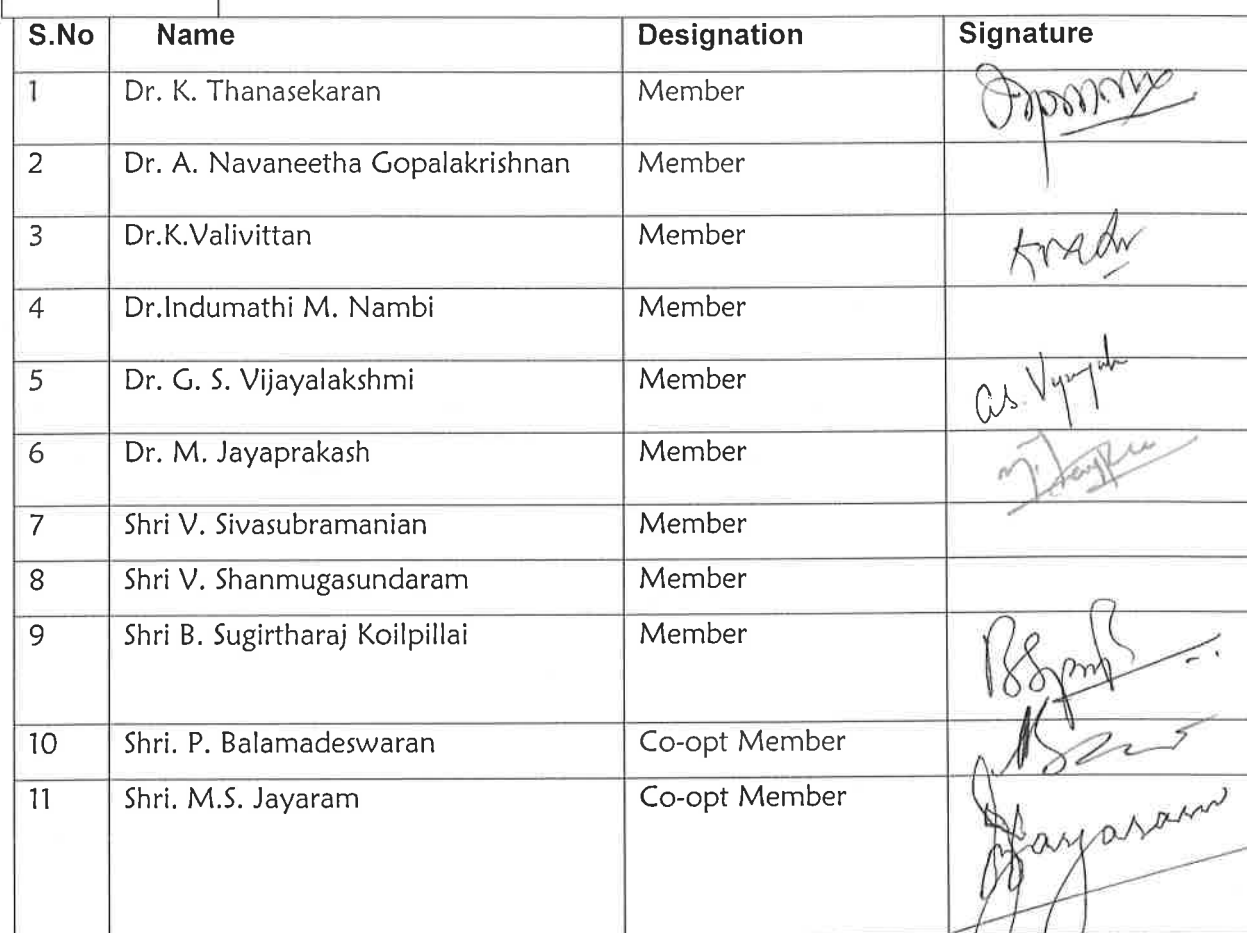 S.No Name Designation Signature
1 Dr. K. Thanasekaran Member
2 Dr. A. Navaneetha Gopalakrishnan Member
3 Dr.K.Valivittan Member
4 Dr.Indumathi M. Nambi Member
5 Dr. G. S. Vijayalakshmi Member
6 Dr. M. Jayaprakash Member
7 Shri V. Sivasubramanian Member
8 Shri V. Shanmugasundaram Member
9 Shri B. Sugirtharaj Koilpillai Member
10 Shri. P. Balamadeswaran Co-opt Member
11 Shri. M.S. Jayaram Co-opt Member